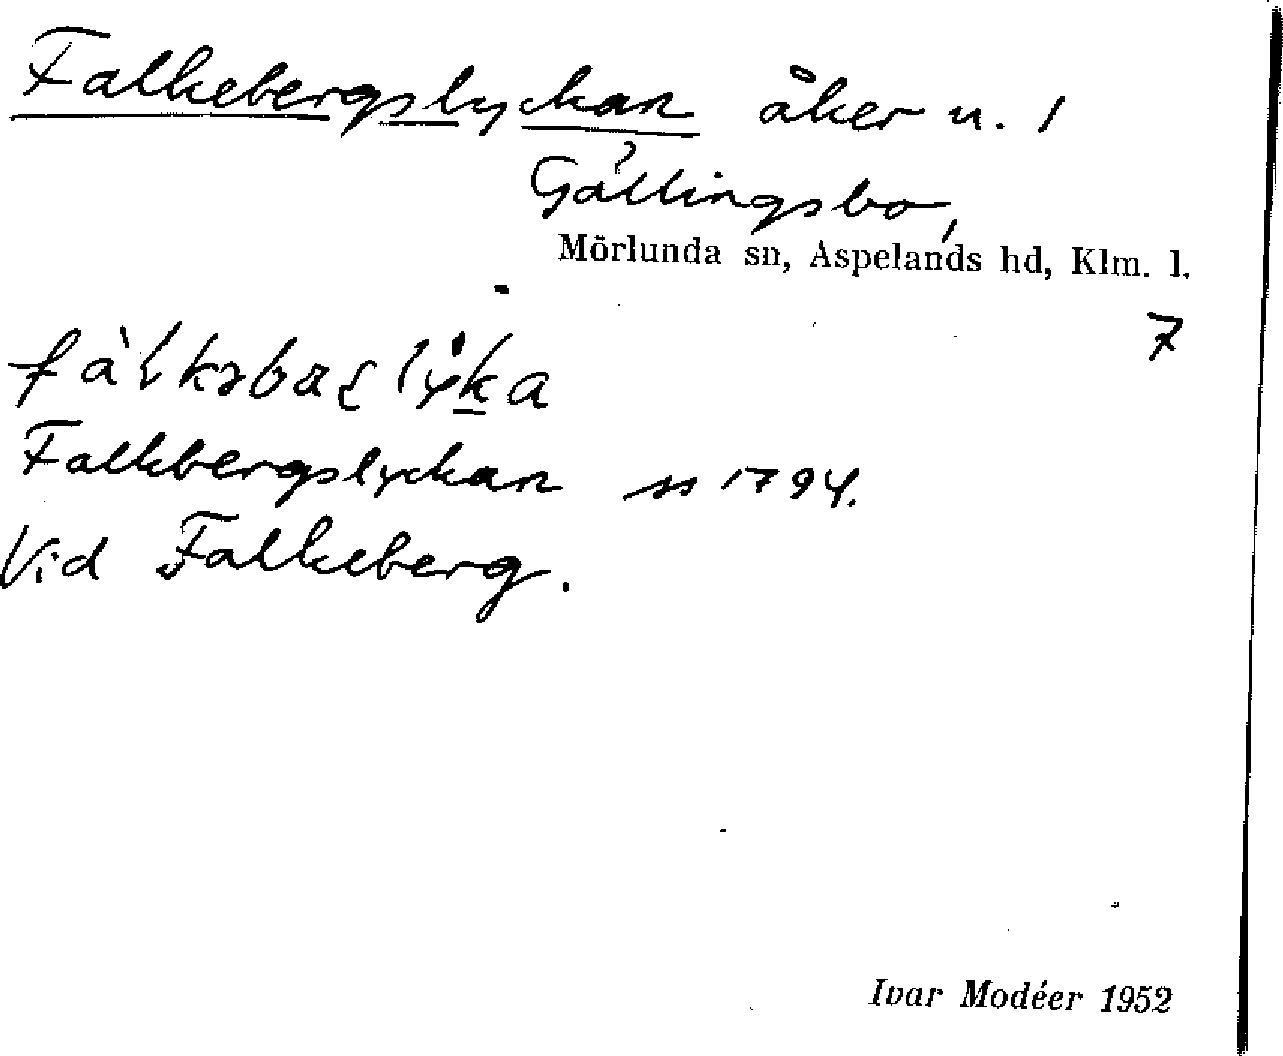 Falkebergslyckan åker u. 1
Gållingsbo,
Mörlunda sn, Aspelands hd, Klm. l.
7
Falkbergslyckan ss 1794.
Vid Falkeberg.
Ivar Modéer 1952